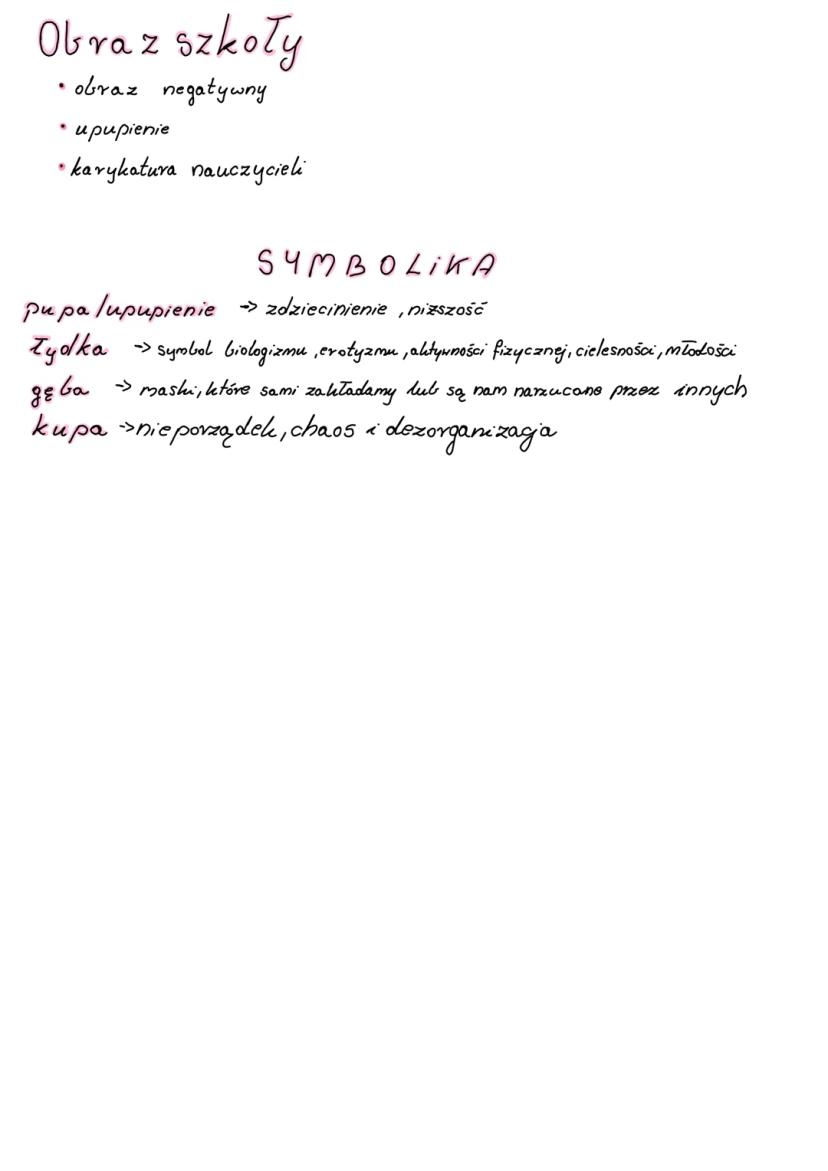 Obraz szkoły
• obraz negatywny
• upupienie
• karykatura nauczycieli
SYMBOLiKA
pupa/upupienie -> zdziecinienie, niższość
łydka -> symbol biologizmu, erotyzmu, aktywności fizycznej, cielesności, młodości
gęba -> maski, które sami zakładamy lub są nam narzucane przez innych
kupa -> nieporządek, chaos i dezorganizacja